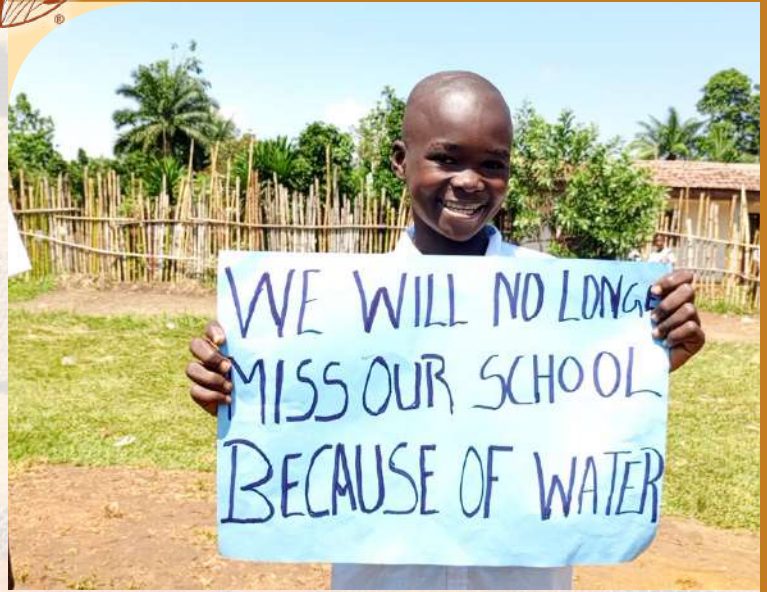 WE WILL NO LONGE
MISS OUR SCHOOL
BECAUSE OF WATER
®